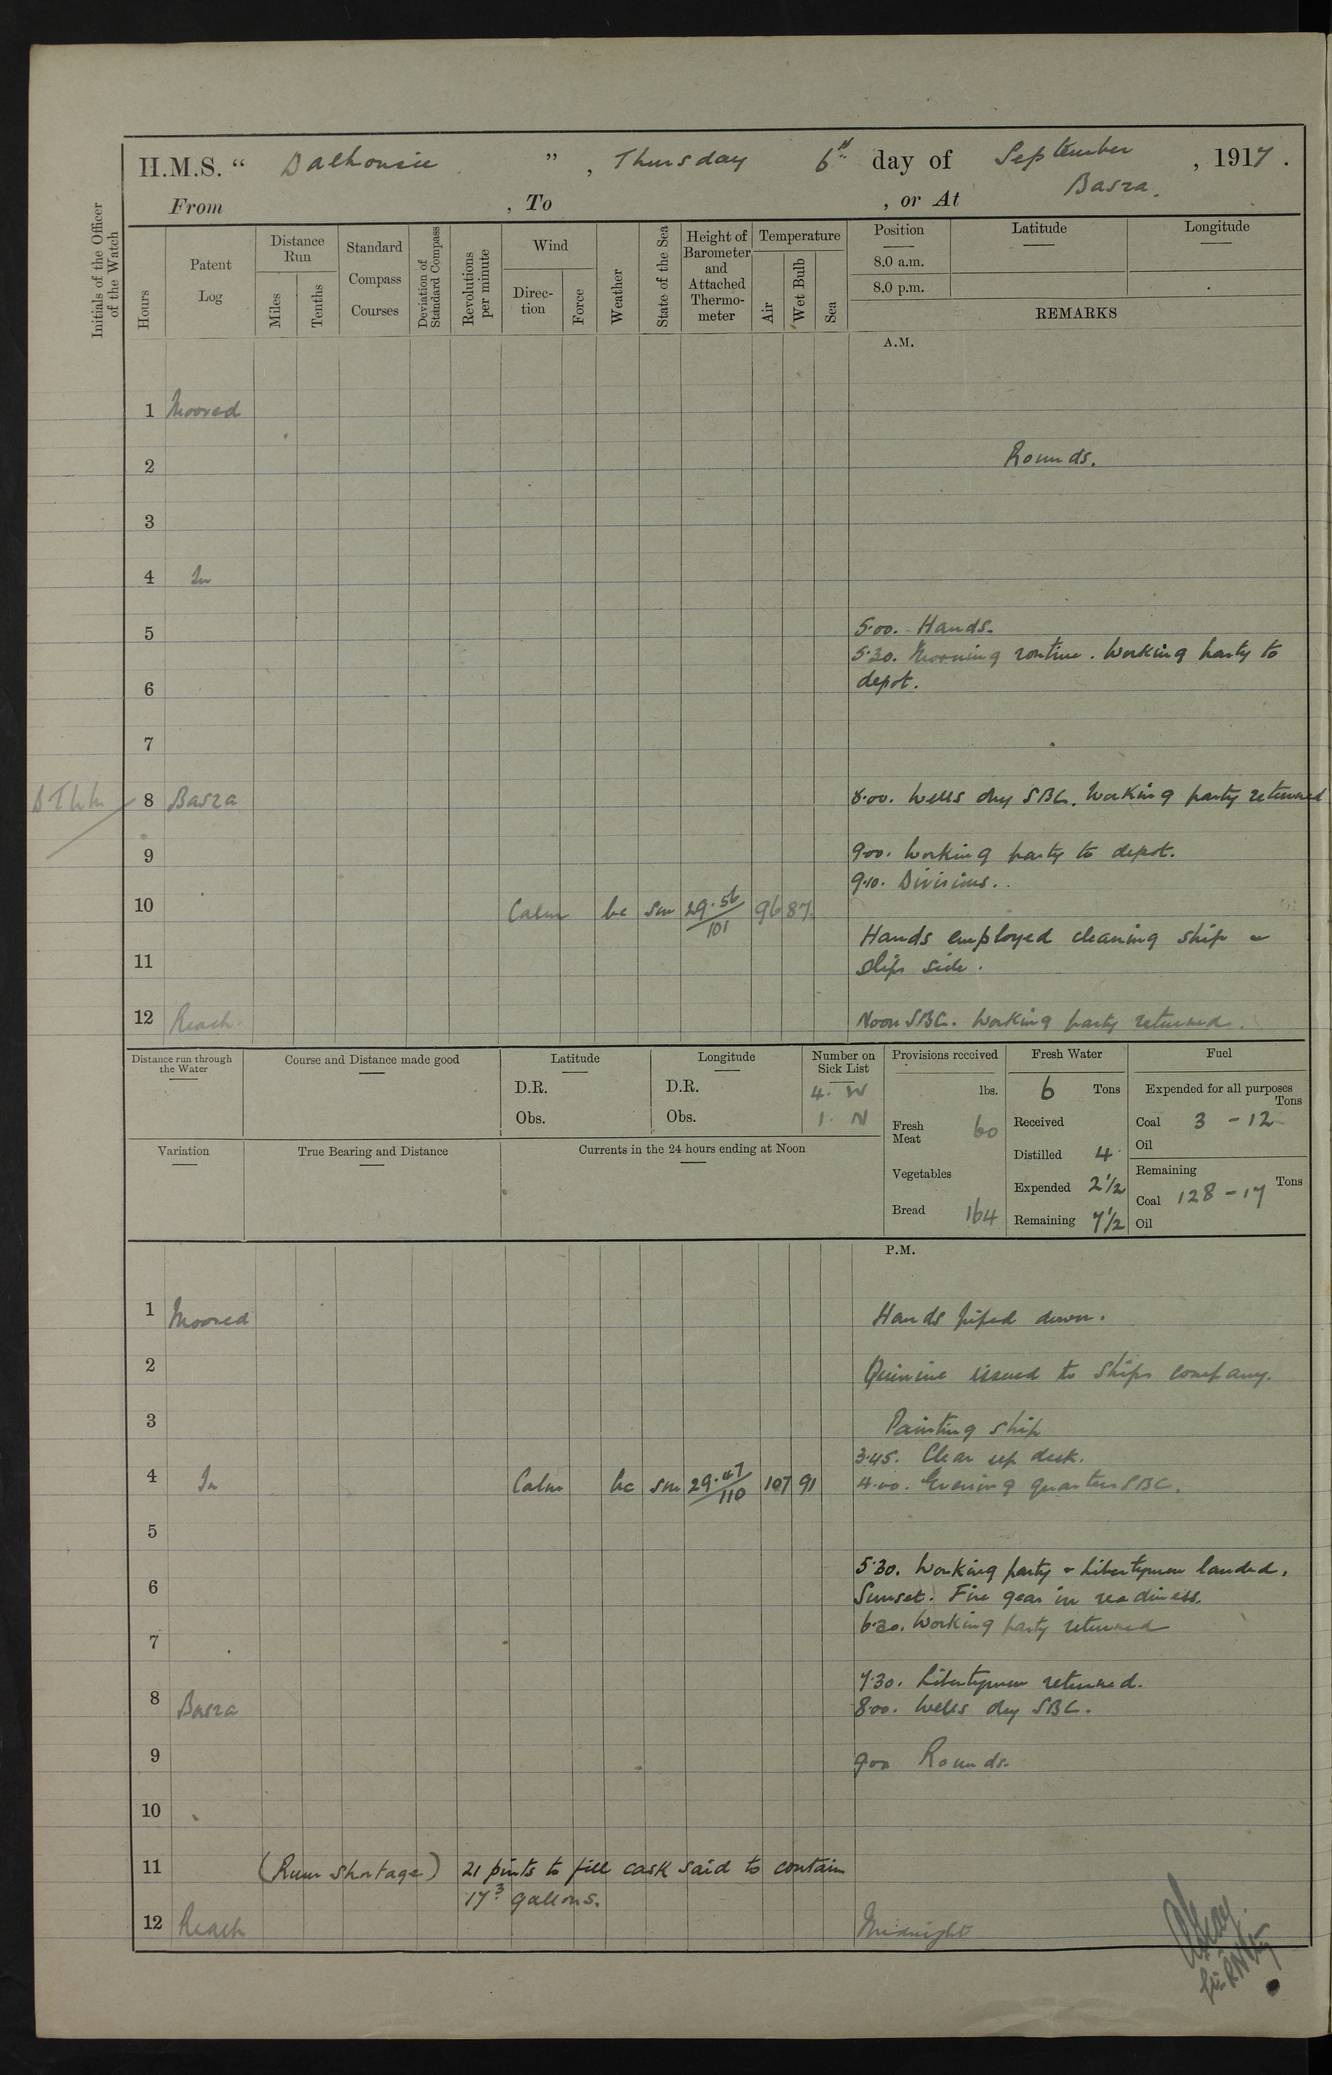 H.M.S. “ Dalhousie ” , Thursday 6th day of September , 1917 .
From , To , or At Basra.
Initials of the Officer of the Watch
Hours
Patent Log
Distance Run
Miles
Tenths
Standard Compass Courses
Deviation of Standard Compass
Revolutions per minute
Wind
Direction
Force
Weather
State of the Sea
Height of Barometer and Attached Thermometer
Temperature
Air
Wet Bulb
Sea
Position
8.0 a.m.
8.0 p.m.
Latitude
Longitude
REMARKS
A.M.
1 Moored
2 Rounds.
3
4 In
5 5.00. Hands.
5.30. Morning routine. Working party to
6 depot.
7
8 Basra 8.00. Wells dry SBC. Working party returned
9 9.00. Working party to depot.
9.10. Divisions.
10 Calm bc sm 29.56/101 96 87
Hands employed cleaning ship &
11 ships side.
12 Reach Noon SBC. Working party returned.
Distance run through the Water
Course and Distance made good
Latitude
D.R.
Obs.
Longitude
D.R.
Obs.
Number on Sick List
4. W
1. N
Provisions received
lbs.
Fresh Meat 60
Vegetables
Bread 164
Fresh Water
6 Tons
Received
Distilled 4
Expended 2 1/2
Remaining 7 1/2
Fuel
Expended for all purposes
Tons
Coal 3 - 12
Oil
Remaining
Tons
Coal 128 - 17
Oil
Variation
True Bearing and Distance
Currents in the 24 hours ending at Noon
P.M.
1 Moored Hands piped down.
2 Quinine issued to ships company.
3 Painting ship
3.45. Clear up deck.
4 In Calm bc sm 29.47/110 107 91 4.00. Evening quarters SBC.
5
5.30. Working party & Libertymen landed.
6 Sunset. Fire gear in readiness.
6.30. Working party returned
7
7.30. Libertymen returned.
8 Basra 8.00. Wells dry SBC.
9 9.00 Rounds.
10
11 (Rum Shortage) 21 pints to fill cask said to contain
17³ gallons.
12 Reach Midnight